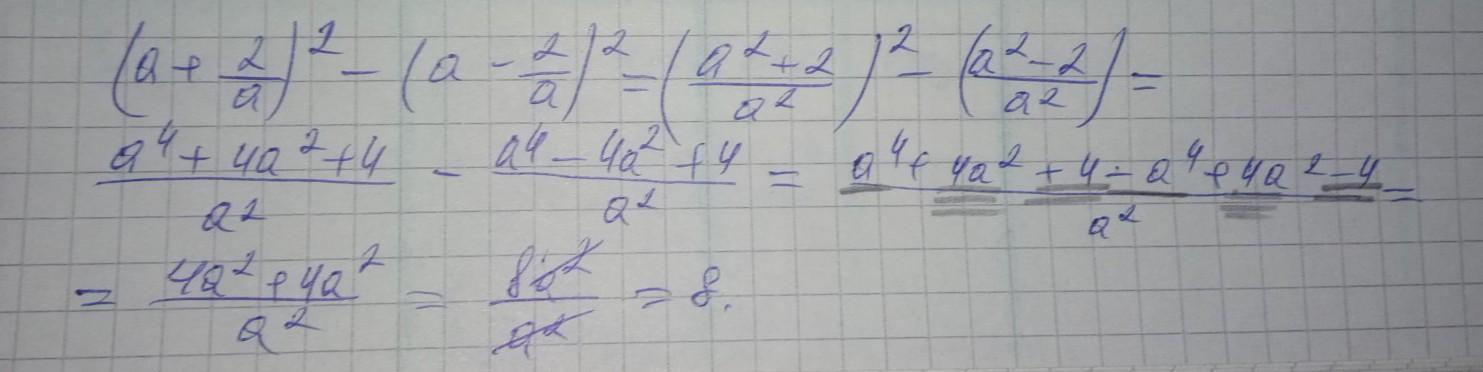 (a + 2/a)² − (a − 2/a)² = ((a² + 2)/a²)² − ((a² − 2)/a²) =
(a⁴ + 4a² + 4)/a² − (a⁴ − 4a² + 4)/a² = (a⁴ + 4a² + 4 − a⁴ + 4a² − 4)/a² =
= (4a² + 4a²)/a² = 8a²/a² = 8.